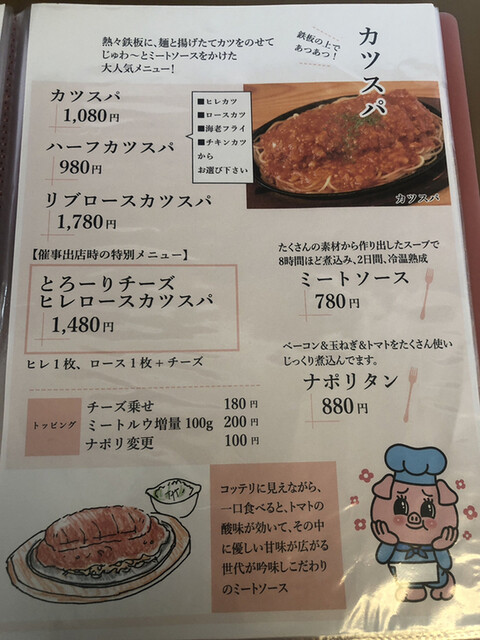 熱々鉄板に、麺と揚げたてカツをのせて
じゅわ〜とミートソースをかけた
大人気メニュー!
鉄板の上で
あつあつ!
カツスパ
カツスパ
1,080円
ハーフカツスパ
980円
リブロースカツスパ
1,780円
■ヒレカツ
■ロースカツ
■海老フライ
■チキンカツ
から
お選び下さい
カツスパ
【催事出店時の特別メニュー】
とろーりチーズ
ヒレロースカツスパ
1,480円
ヒレ1枚、ロース1枚+チーズ
たくさんの素材から作り出したスープで
8時間ほど煮込み、2日間、冷温熟成
ミートソース
780円
ベーコン&玉ねぎ&トマトをたくさん使い
じっくり煮込んでます。
ナポリタン
880円
トッピング
チーズ乗せ 180円
ミートルウ増量100g 200円
ナポリ変更 100円
コッテリに見えながら、
一口食べると、トマトの
酸味が効いて、その中
に優しい甘味が広がる
世代が吟味しこだわり
のミートソース